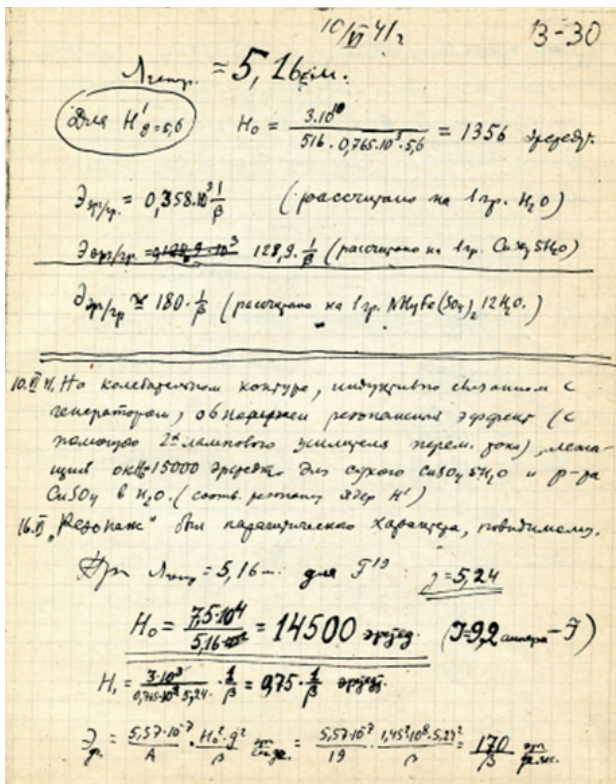 10/VI 41г 13-30
λ = 5,16 см.
Для H¹ g=5,6 H₀ = 3·10¹⁰ / 516 · 0,765·10³ · 5,6 = 1356 эрстедт.
Э эрг/гр. = 0,358·10³ 1/β (рассчитано на 1 гр. H₂O)
Э эрг/гр. 128,9 · 1/β (рассчитано на 1 гр. CuSO₄ 5H₂O)
Э эрг/гр ≅ 180 · 1/β (рассчитано на 1 гр. 12H₂O.)
10.VI 41. На колебательном контуре, индуктивно связанном с
генератором, обнаружен резонансный эффект (с
помощью 2х лампового усилителя перем. тока), лежа-
щий 15000 эрстедт. для сухого CuSO₄ 5H₂O и р-ра
CuSO₄ в H₂O. (соотв. резонансу ядер H¹)
16.VI „Резонанс" был паразитического характера, повидимому.
При λ = 5,16 м. для F¹⁹ g = 5,24
H₀ = 7,5·10⁴ / 5,16 = 14500 эрстед. (J=9,2 ампера - )
H₁ = 3·10³ / 0,765·10³ 5,24 · 1/β = 0,75 · 1/β эрстедт.
Э = 5,57·10⁻⁷ / A · H₀²·g² / β = 5,57·10⁻⁷ / 19 · 1,45²·10⁸·5,24² / β = 170 / β